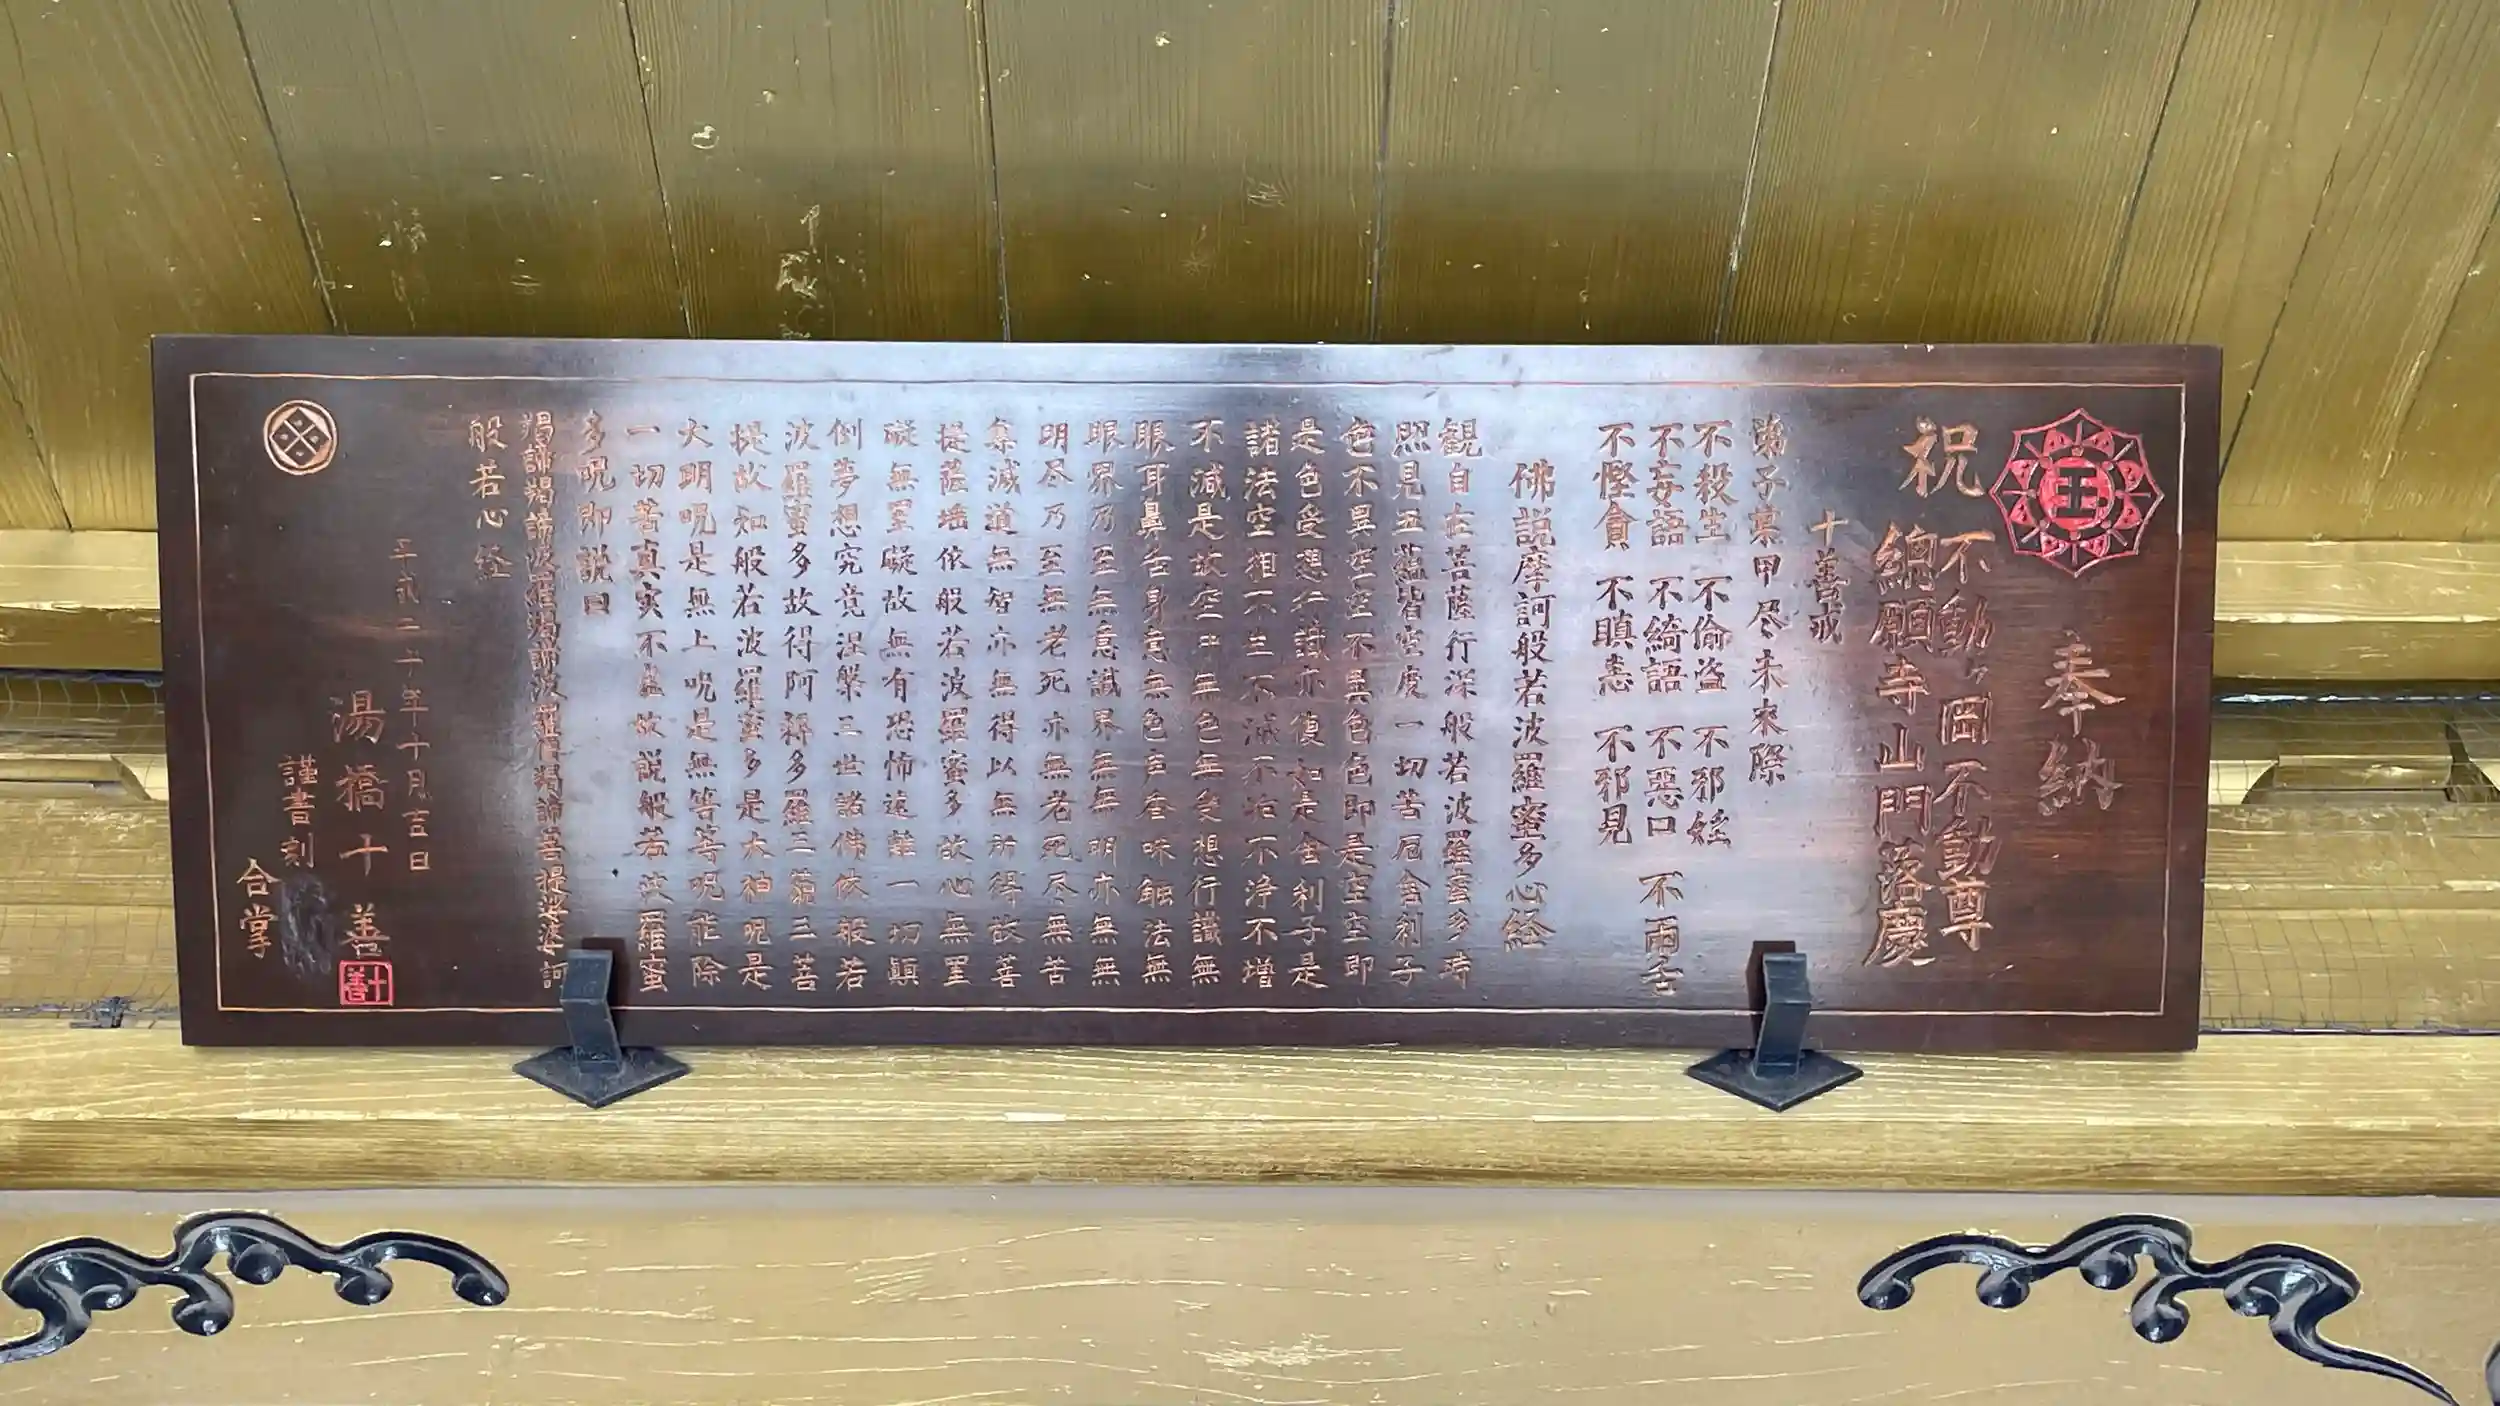 奉納
祝
不動ヶ岡不動尊
總願寺山門落慶
十善戒
弟子某甲尽未来際
不殺生 不偸盗 不邪婬
不妄語 不綺語 不悪口 不両舌
不慳貪 不瞋恚 不邪見
佛説摩訶般若波羅蜜多心経
観自在菩薩行深般若波羅蜜多時
照見五蘊皆空度一切苦厄舎利子
色不異空空不異色色即是空空即
是色受想行識亦復如是舎利子是
諸法空相不生不滅不垢不浄不増
不減是故空中無色無受想行識無
眼耳鼻舌身意無色声香味触法無
眼界乃至無意識界無無明亦無無
明尽乃至無老死亦無老死尽無苦
集滅道無智亦無得以無所得故菩
提薩埵依般若波羅蜜多故心無罣
礙無罣礙故無有恐怖遠離一切顛
倒夢想究竟涅槃三世諸佛依般若
波羅蜜多故得阿耨多羅三藐三菩
提故知般若波羅蜜多是大神呪是
大明呪是無上呪是無等等呪能除
一切苦真実不虚故説般若波羅蜜
多呪即説曰
羯諦羯諦波羅羯諦波羅僧羯諦菩提娑婆訶
般若心経
平成二十年十月吉日
湯橋十善
十善
謹書刻
合掌